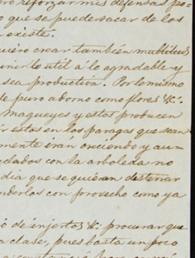 reforzar mis defensas po
que se puede sacar de los
existe.
quiero crear también multitud
unir lo util á lo agradable y
sea productiva. Por lo mismo
de puro adorno como flores &c.
Magueyes y estos producen
estos en los parages que sean
mente iran creciendo y aun
dados con la arboleda no
dia que se quieran destinar
nderlos con provecho como ya
ó de injertos &c. procurar que
clase, pues hasta un poco